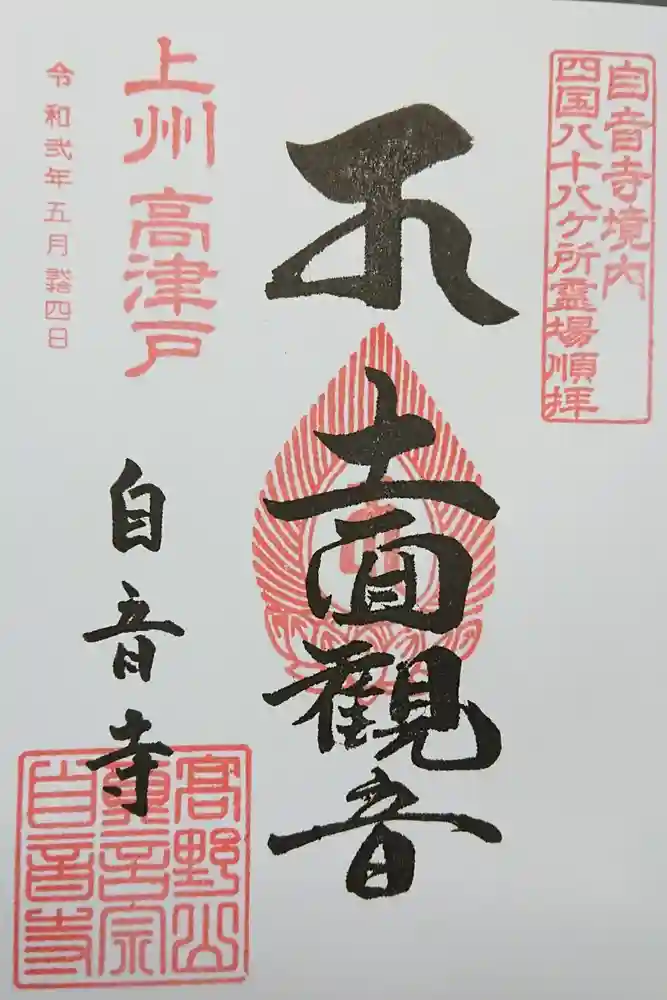 自音寺境内
四国八十八ケ所霊場順拝
十一面觀音
上州 高津戸
令和弍年五月拾四日
自音寺
髙野山
眞言宗
自音寺